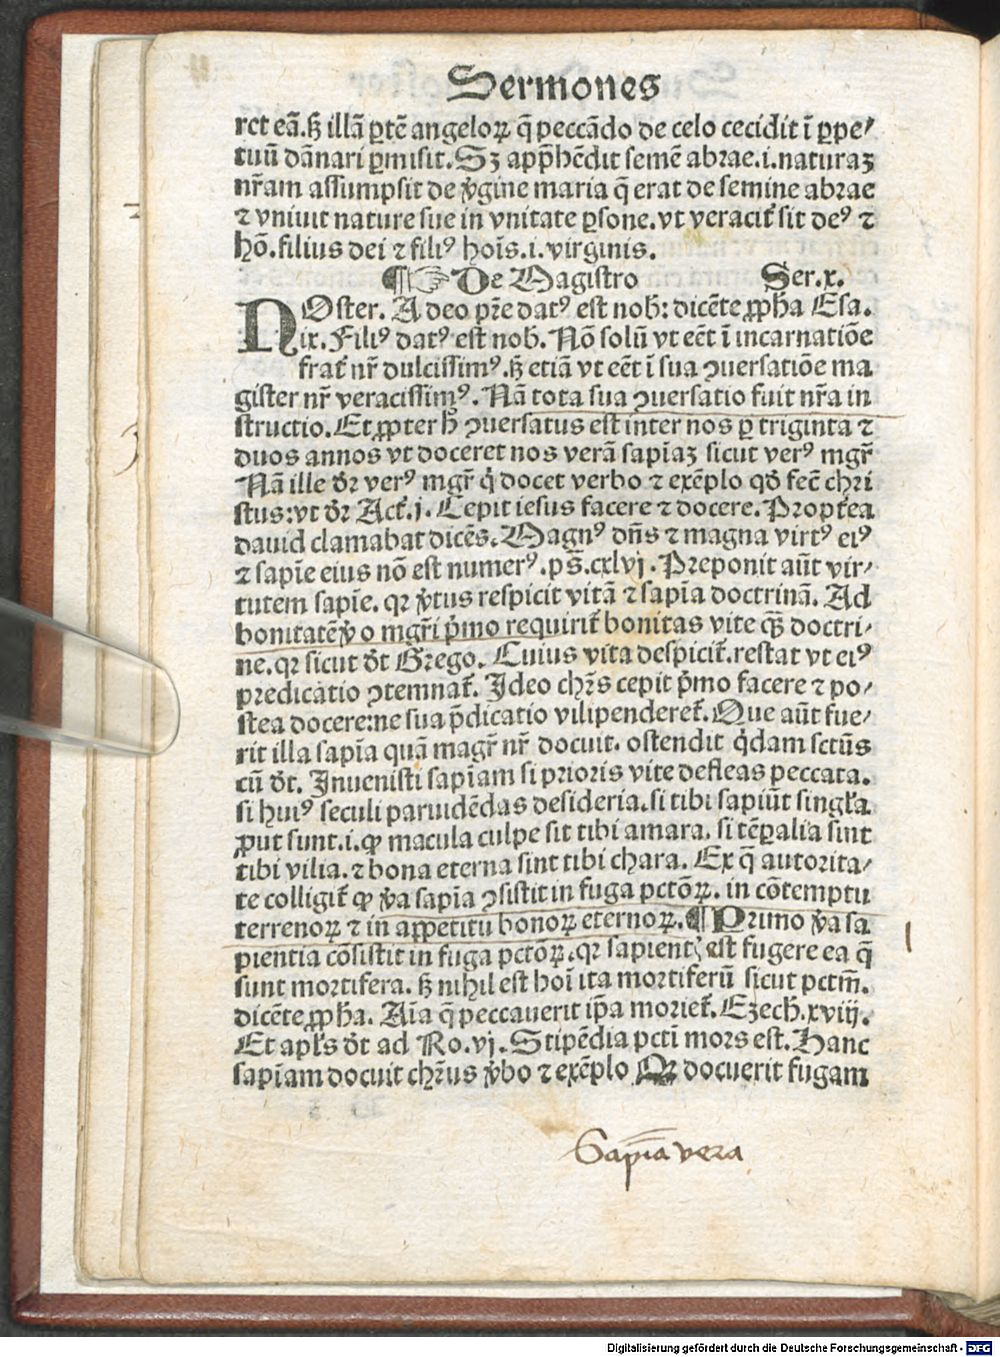 Sermones
ret eã. sꝫ illã ꝑtẽ angeloꝝ q̃ peccãdo de celo cecidit ĩ ꝑpe⸗
tuũ dãnari ꝑmisit. Sꝫ app̃hẽdit semẽ abrae .i. naturaꝫ
nr̃am assumpsit de v̾gine maria q̃ erat de semine abrae
⁊ vniuit nature sue in vnitate ꝑsone. vt veracit᷑ sit deꝰ ⁊
hõ. filius dei ⁊ filiꝰ hoĩs .i. virginis.
¶ ☞ De Magistro Ser. x.
NOster. Adeo pr̃e datꝰ est nob̃: dicẽte ꝓph̃a Esa.
ix. Filiꝰ datꝰ est nob̃. Nõ solũ vt eẽt ĩ incarnatiõe
frat᷑ nr̃ dulcissimꝰ. sꝫ etiã vt eẽt ĩ sua ↄuersatiõe ma
gister nr̃ veracissimꝰ. Nã tota sua ↄuersatio fuit nr̃a in
structio. Et ꝓpter h̃ ↄuersatus est inter nos ꝑ triginta ⁊
duos annos vt doceret nos verã sapiaꝫ sicut verꝰ mgr̃
Nã ille dr̃ verꝰ mgr̃ q̇ docet verbo ⁊ exẽplo qd̃ fec̃ chri
stus: vt dr̃ Act᷑. j. Cepit iesus facere ⁊ docere. Propt᷑ea
dauid clamabat dicẽs. Magnꝰ dñs ⁊ magna virtꝰ eiꝰ
⁊ sapiẽ eius nõ est numerꝰ. ps̃. cxlvj. Preponit aũt vir⸗
tutem sapiẽ. qꝛ v̾tus respicit vitã ⁊ sapia doctrinã. Ad
bonitatẽ v̾o mgr̃i p̃mo requirit᷑ bonitas vite q̃ꝫ doctri⸗
ne. qꝛ sicut dt̃ Grego. Cuius vita despicit᷑. restat vt eiꝰ
predicatio ↄtemnat᷑. Ideo chr̃s cepit p̃mo facere ⁊ po⸗
stea docere: ne sua p̃dicatio vilipenderet᷑. Que aũt fue⸗
rit illa sapĩa quã magr̃ nr̃ docuit. ostendit q̇dam sctũs
cũ dt̃. Inuenisti sapĩam si prioris vite defleas peccata.
si huiꝰ seculi paruidẽdas desideria. si tibi sapiũt singl̃a
ꝓut sunt .i. ꝙ macula culpe sit tibi amara. si tẽꝑalia sint
tibi vilia. ⁊ bona eterna sint tibi chara. Ex q̃ autorita⸗
te colligit᷑ ꝙ v̾a sapĩa ↄsistit in fuga pctõꝝ. in cõtemptu
terrenoꝝ ⁊ in appetitu bonoꝝ eternoꝝ. ¶ Primo v̾a sa
pientia cõsistit in fuga pctõꝝ. qꝛ sapient̉ est fugere ea q̃
sunt mortifera. sꝫ nihil est hoĩ ita mortiferũ sicut pctm̃.
dicẽte ꝓph̃a. Aĩa q̃ peccauerit ip̃a moriet᷑. Ezech. xviij.
Et apl̃s dt̃ ad Ro. vj. Stipẽdia pcti mors est. Hanc
sapĩam docuit chr̃us v̾bo ⁊ exẽplo Qꝛ docuerit fugam
Sapĩa vera
Digitalisierung gefördert durch die Deutsche Forschungsgemeinschaft - DFG